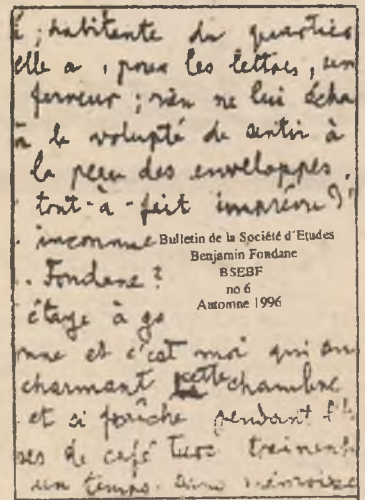 é ; habitante du quartier
elle a , pour les lettres, un
ferveur ; rien ne lui écha
à la volupté de sentir à
la peau des enveloppes.
tout-à-fait imprévu ?"
inconnue
Bulletin de la Société d'Etudes
Benjamin Fondane
BSEBF
no 6
Automne 1996
. Fondane ?
étage à ga
nne et c'est moi qui an
charmant cette chambre
et si fraîche pendant l'
ses de café turc traînent
un temps. sans mémoire